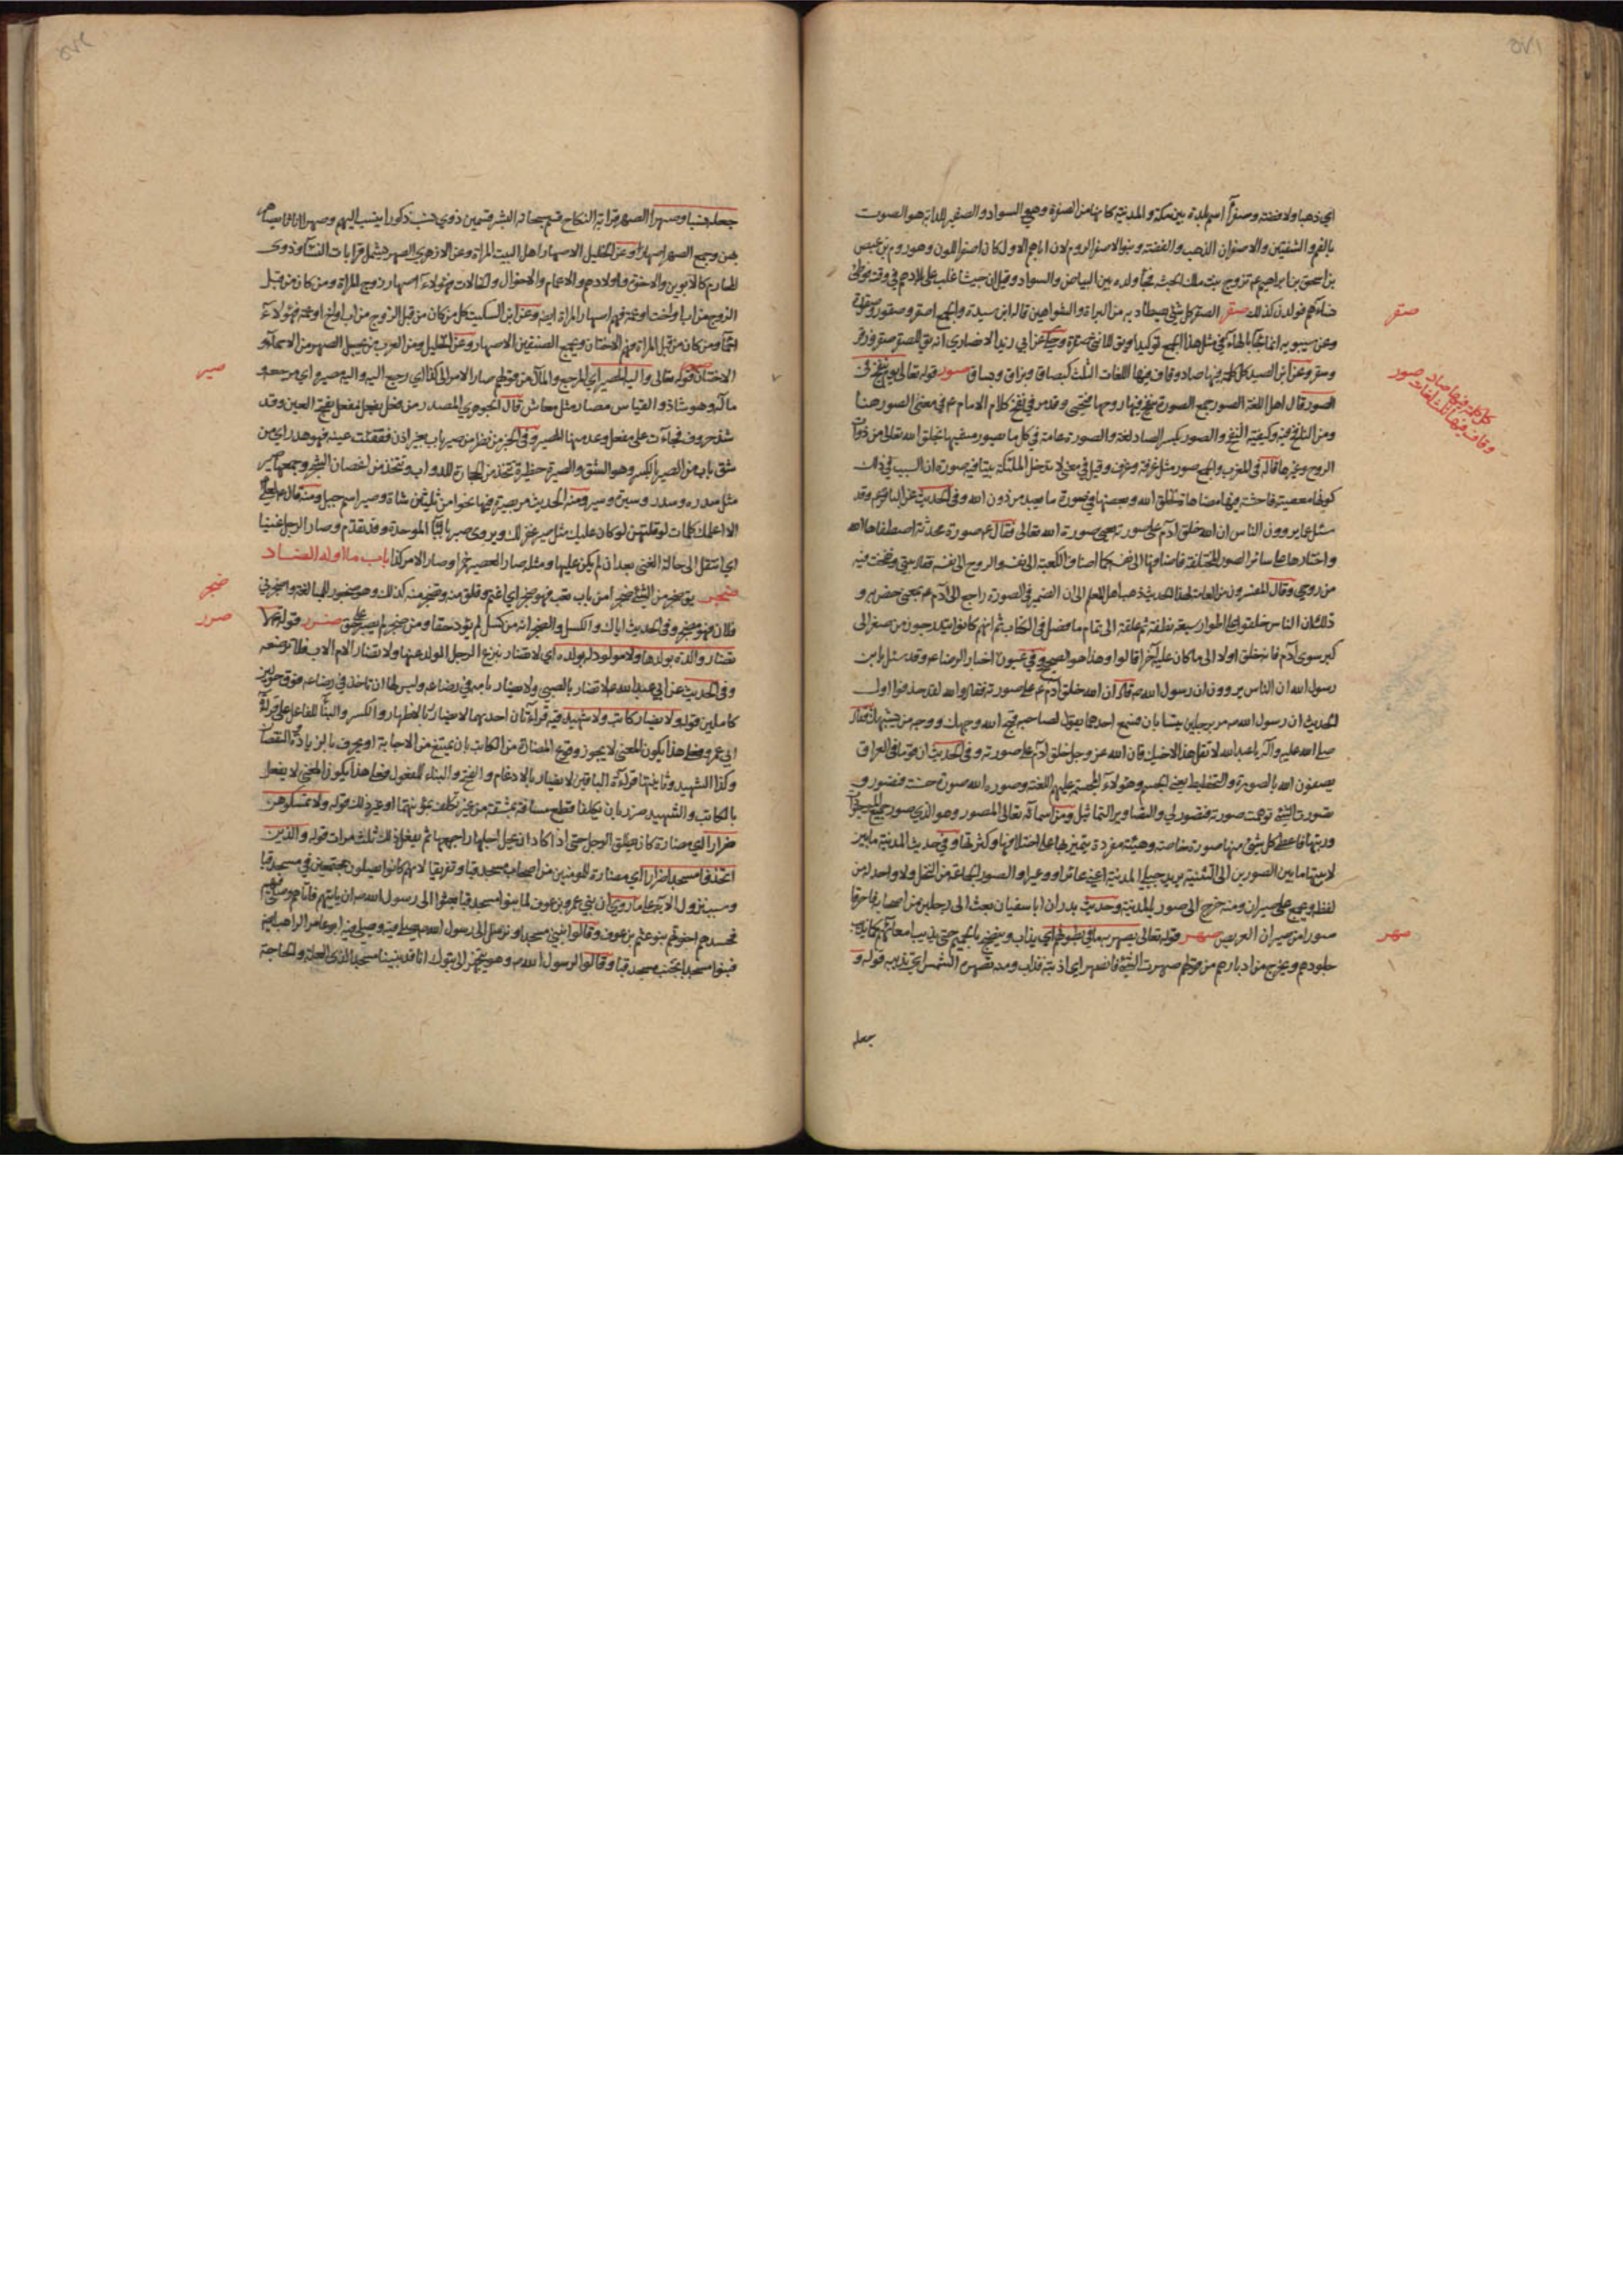 اي ذهبا ولا فضة وصفرآ اسم بلدة بين مكة والمدينة كانها من الصفرة وهي السواد والصفير للدابة هو الصوت
بالفم والشفتين والاصفران الذهب والفضة وبنو الاصفر الروم لان اباهم الاول كان اصفر اللون وهو روم بن عيص
بن اسحق بن ابراهيم ع تزوج بنت ملك الحبشة فجآ ولده بين البياض والسواد وقيل ان حبشا غلب على بلادهم في وقت فوطئ
نساءهم فولدن كذلك صقر الصقر كل شئ يصطاد به من البزاة والشواهين قال ابن سيدة والجمع اصقر وصقور وصقورة
وعن سيبويه انما جآ بالهآء في مثل هذا الجمع توكيدا ويق للانثى صقرة وحكى عن ابي زيد الانصاري انه يق للصقر صقر وزقر
وسقر وعن ابن السيد كل كلمة فيها صاد وقاف ففيها اللغات الثلث كبصاق وبزاق وبساق صور قوله تعالى يوم ينفخ في
الصور قال اهل اللغة الصور جمع الصورة ينفخ فيها روحها فتحيى وقد مر في نفخ كلام الامام ع في معنى الصور هنا
ومن النافخ فيه وكيفية النفخ والصور بكسر الصاد لغة والصورة عامة في كل ما يصور مشبها بخلق الله تعالى من ذوات
الروح وغيرها قاله في المغرب والجمع صور مثل غرفة وغرف وقيل في معنى لا تدخل الملئكة بيتا فيه صورة ان السبب في ذلك
كونها معصية فاحشة وفيها مضاهاة لخلق الله وبعضها في صورة ما يعبد من دون الله وفي الحديث عن الباقر ع وقد
سئل عما يروون الناس ان الله خلق آدم على صورته هي صورة الله تعالى فقال ع صورة محدثة اصطفاها الله
واختارها على سائر الصور المختلفة فاضافها الى نفسه كما اضاف الكعبة الى نفسه والروح الى نفسه فقال بيتي ونفخت فيه
من روحي وقال المفسرون من العامة لهذا الحديث ذهب اهل العلم الى ان الضمير في الصورة راجع الى آدم ع بمعنى خص به و
ذلك ان الناس خلقوا على اطوار سبعة نطفة ثم علقة الى تمام ما فصل في الكتاب ثم انهم كانوا يتدرجون من صغر الى
كبر سوى آدم فانه خلق اولا الى ما كان عليه آخرا قالوا وهذا هو الصحيح وفي عيون اخبار الرضا ع وقد سئل يا بن
رسول الله ان الناس يروون ان رسول الله ص قال ان الله خلق آدم ع على صورته فقال والله لقد حذفوا اول
الحديث ان رسول الله ص مر برجلين يتسابان فسمع احدهما يقول لصاحبه قبح الله وجهك ووجه من يشبهك فقال
صلى الله عليه وآله يا عبد الله لا تقل هذا لاخيك فان الله عز وجل خلق آدم على صورته وفي الحديث ان قوما في العراق
يصفون الله بالصورة والتخطيط يعني الجسم وهؤلاء المجسمة عليهم اللعنة وصوره الله صورة حسنة فتصور و
تصورت الشئ توهمت صورته فتصور لي والتصاوير التماثيل ومن اسمائه تعالى المصور وهو الذي صور جميع الموجودات
ورتبها فاعطى كل شئ منها صورة خاصة وهيئة مفردة يتميز بها على اختلافها وكثرتها وفي حديث المدينة ما بين
لابتيها ما بين الصورين الى الثنية يريد جبلي المدينة اعني عائرا ووعيرا والصور الجماعة من النخل ولا واحد له من
لفظه ويجمع على صيران ومنه خرج الى صور بالمدينة وحديث بدر ان ابا سفيان بعث الى رجلين من اصحابه فاحرقا
صورا من صيران العريض صهر قوله تعالى يصهر به ما في بطونهم اي يذاب وينضج بالحميم حتى يذيب امعاءهم كما يذيب
جلودهم ويخرج من ادبارهم من قولهم صهرت الشئ فانصهر اي اذبته فذاب ومنه تصهره الشمس اي تذيبه قوله و
جعله
صقر
صور
كل كلمة فيها صاد
وقاف ففيها ثلث لغات
صهر
جعله نسبا وصهرا الصهر قرابة النكاح قسم سبحانه البشر قسمين ذوي نسب ذكورا ينسب اليهم وصهر اناثا يصاهر
بهن وجمع الصهر اصهار وعن الخليل الاصهار اهل البيت المراة وعن الازهري الصهر يشمل قرابات النسآ وذوى
المحارم كالابوين والاخوة واولادهم والاعمام والاخوال والخالات فهؤلاء اصهار زوج المراة ومن كان من قبل
الزوج من اب او اخت او عمة فهم اصهار المراة ايضه وعن ابن السكيت كل من كان من قبل الزوج من اب او اخ او عم فهؤلاء
احمآ ومن كان من قبل المراة فهم الاختان ويجمع الصنفين الاصهار وعن الخليل ومن العرب من يجعل الصهر من الاحمآء و
الاختان صير قوله تعالى واليه المصير اي المرجع والمآل من قولهم صار الامر الى كذا اي رجع اليه واليه مصيره اي مرجعه و
مآله وهو شاذ والقياس مصار مثل معاش قال الجوهري المصدر من فعل يفعل مفعل بفتح العين وقد
شذ حروف فجاءت على مفعل وعد منها المصير وفي الخبر من نظر من صير باب بغير اذن ففقئت عينه فهو هدر اي من
شق باب من الصير بالكسر وهو الشق والصيرة حظيرة تتخذ من الحجارة للدواب وتتخذ من اغصان الشجر وجمعها صير
مثل سدرة وسدر وسيرة وسير ومنه الحديث مر بصيرة فيها نحوا من ثلثين شاة وصير اسم جبل ومنه قال لعلي ع
الا اعلمك كلمات لو قلتهن لو كان عليك مثل صير غفر لك ويروى صبر بالبآ الموحدة وقد تقدم وصار الرجل غنيا
اي انتقل الى حالة الغنى بعد ان لم يكن عليها ومثله صار العصير خمرا وصار الامر كذا باب ما اوله الضاد
ضجر يق ضجر من الشئ ضجرا من باب تعب فهو ضجر اي اغتم وقلق منه وتضجر منه كذلك وهو ضجور للمبالغة واضجرني
فلان فهو مضجر وفي الحديث اياك والكسل والضجر انه من كسل لم يؤد حقا ومن ضجر لم يصبر على حق ضرر قوله تعالى لا
تضار والدة بولدها ولا مولود له بولده اي لا تضار بنزع الرجل الولد عنها ولا تضار الام الاب فلا ترضعه
وفي الحديث عن ابي عبد الله ع لا تضار بالصبي ولا يضار بامه في رضاعه وليس لها ان تاخذ في رضاعه فوق حولين
كاملين قوله ولا يضار كاتب ولا شهيد فيه قراءتان احديهما لا يضار بالاظهار والكسر والبنآ للفاعل على قراءة
ابي عمرو فعلى هذا يكون المعنى لا يجوز وقوع المضارة من الكاتب بان يمتنع من الاجابة او يحرف بالزيادة والنقصان
وكذا الشهيد وثانيتها قراءة الباقين لا يضار بالادغام والفتح والبناء للمفعول فعلى هذا يكون المعنى لا يفعل
بالكاتب والشهيد ضرر بان يكلفا قطع مسافة بمشقة من غير تكلف بمؤنتهما او غير ذلك قوله ولا تمسكوهن
ضرارا اي مضارة كان يطلق الرجل حتى اذا كاد ان يحل اجلها راجعها ثم يفعل ذلك ثلث مرات قوله والذين
اتخذوا مسجدا ضرارا اي مضارة للمؤمنين من اصحاب مسجد قبا وتفريقا لانهم كانوا يصلون مجتمعين في مسجد قبا
وسبب نزول الآية على ما روي ان بني عمرو بن عوف لما بنوا مسجد قبا بعثوا الى رسول الله ص ان ياتيهم فاتاهم وصلى فيهم
فحسدهم اخوتهم بنو غنم بن عوف وقالوا نبني مسجدا ونرسل الى رسول الله ص يصلي فيه ويصلي فيه ابو عامر الراهب ايضه
فبنوا مسجدا بجنب مسجد قبا وقالوا لرسول الله ص وهو يتجهز الى تبوك انا قد بنينا مسجدا لذي العلة والحاجة
صير
ضجر
ضرر